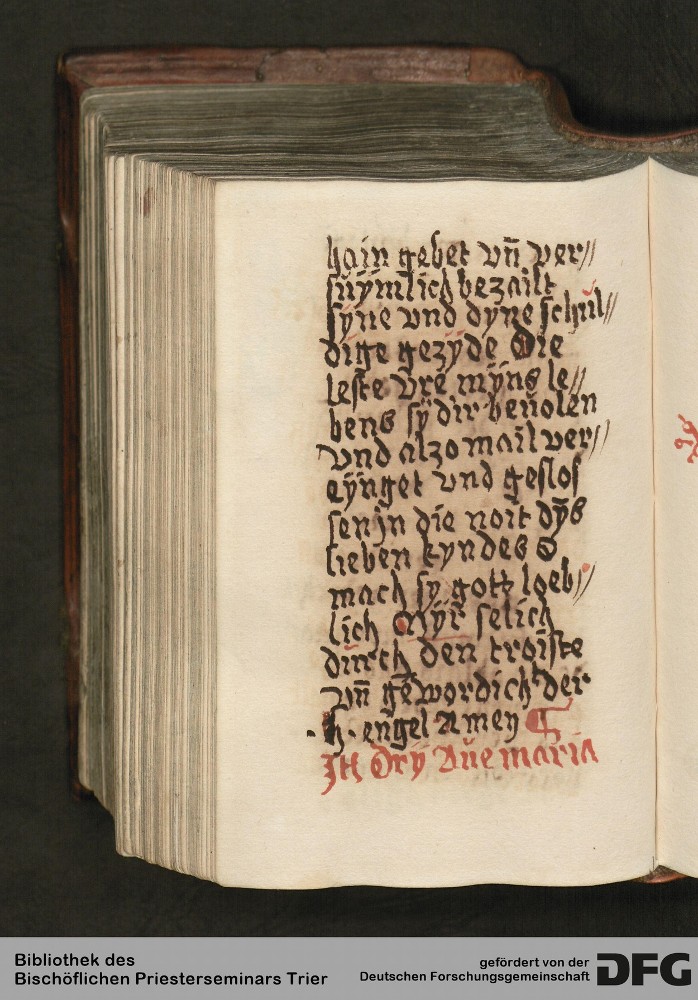 hain gebet vn̄ ver//
suÿmlich bezailt
syne vnd dyne schul//
dige gezÿde Die
leste vre mÿns le//
bens sÿ dir beuolen
vnd alzo mail ver//
eÿnget vnd geslos
sen jn die noit dÿs
lieben kyndes O
mach sy gott loeb//
lich Mÿr selich
durch den troiste
vn̄ gewordich der
.h. engel Amen
Itē Dry Aue maria
Bibliothek des
Bischöflichen Priesterseminars Trier
gefördert von der
Deutschen Forschungsgemeinschaft
DFG